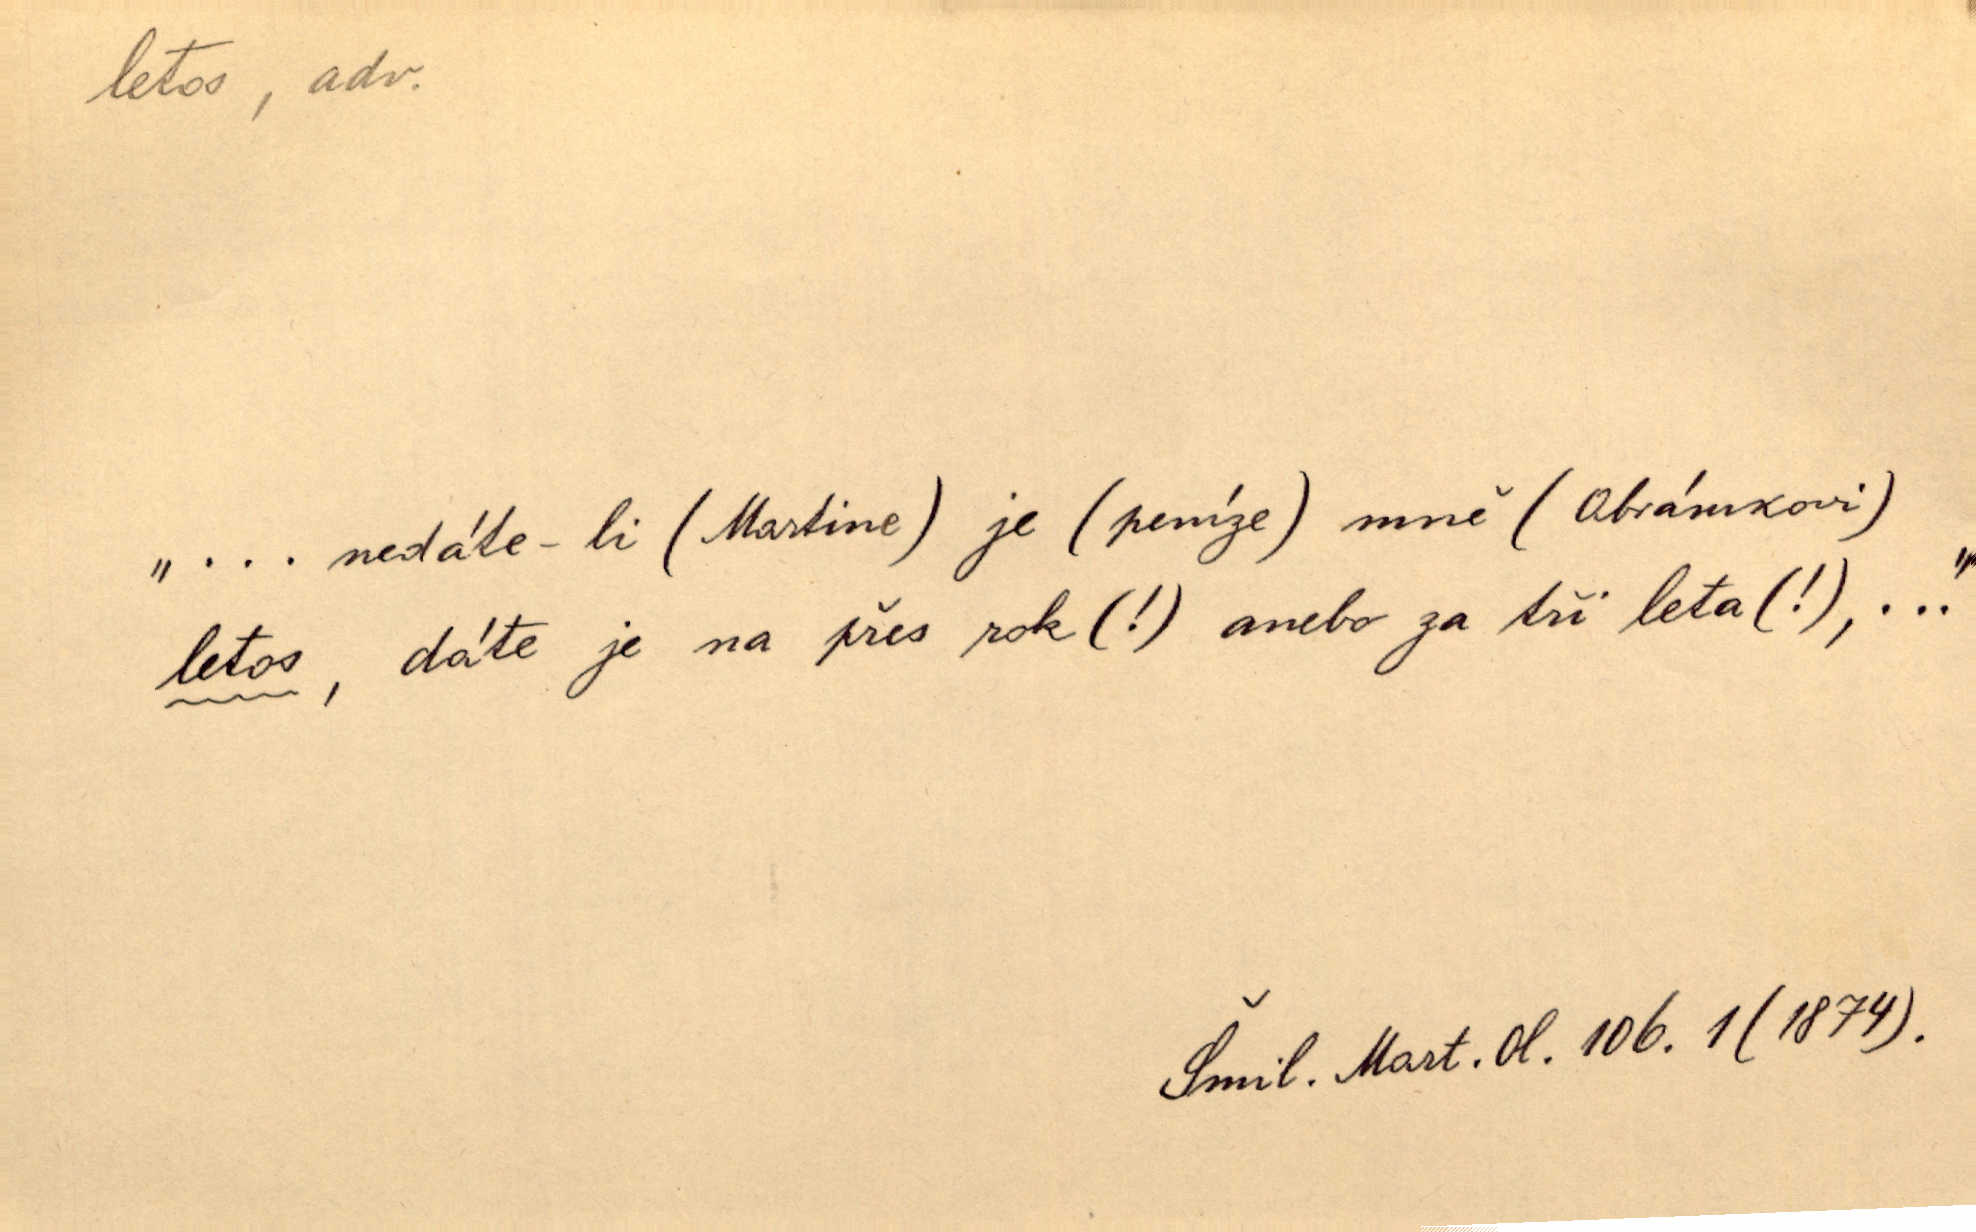 letos, adv.
„... nedáte-li (Martine) je (peníze) mně (Abrámkovi)
letos, dáte je na přes rok (!) anebo za tři leta (!), ..."
Šmil. Mart. Ol. 106. 1 (1874).